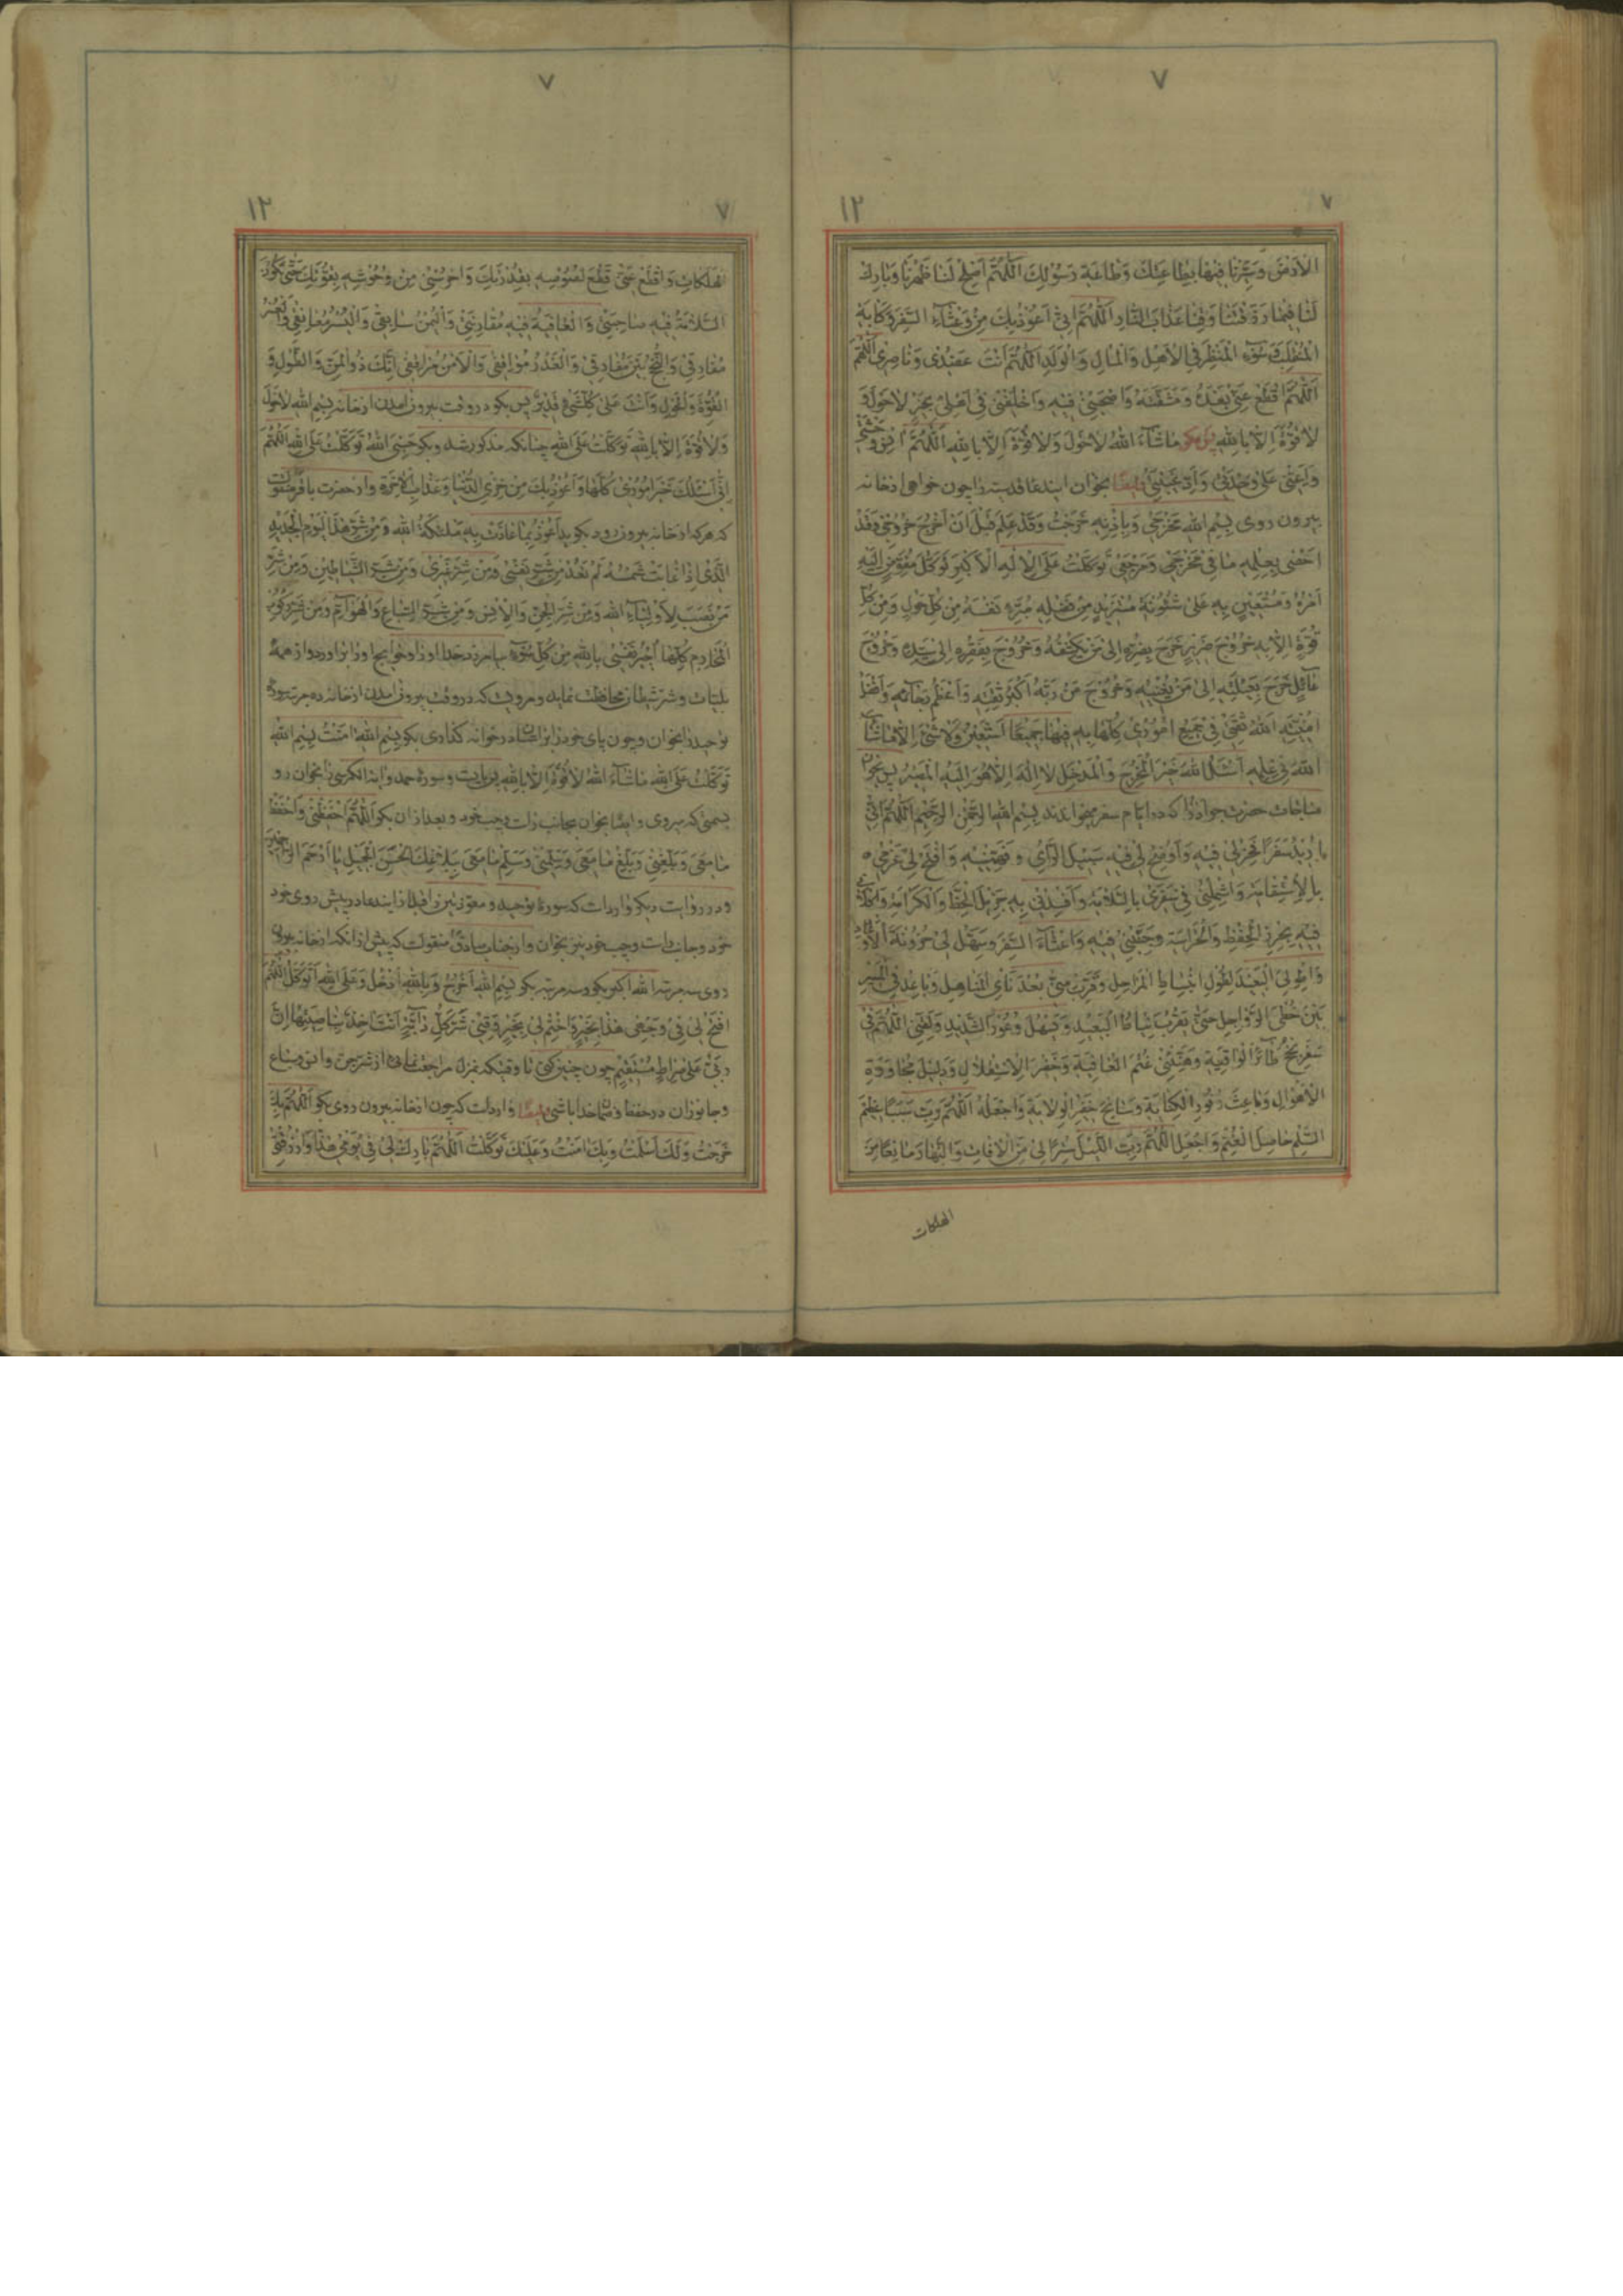 ٧
٧
١٢
الأرض وسيرنا فيها بطاعتك وطاعة رسولك اللهم اصلح لنا ظهرنا وبارك
لنا فيما رزقتنا وقنا عذاب النار اللهم اني اعوذ بك من وعثاء السفر وكابة
المنقلب وسوء المنظر في الاهل والمال والولد اللهم انت عضدي وناصري اللهم
اللهم اقطع عني بعده ومشقته واصحبني فيه واخلفني في اهلي بخير لا حول و
لا قوة الا بالله پس بگو ماشاء الله لا حول ولا قوة الا بالله اللهم انس وحشتي
واعني على وحدتي واد غيبتي ايضا بخوان ايندعا قدسيه را چون خواهي از خانه
بيرون روى بسم الله مخرجي وباذنه خرجت وقد علم قبل ان اخرج خروجي وقد
احصى بعلمه ما في مخرجي ومرجعي توكلت على الاله الاكبر توكل مفوض اليه
امره ومستعين به على شئونه مستزيد من فضله مبرئ نفسه من كل حول ومن كل
قوة الا به خروج ضرير خرج بضره الى من يكشفه وخروج فقير خرج بفقره الى من يسده وخروج
عائل خرج بعيلته الى من يغنيها وخروج من ربه اكبر ثقته واعظم رجائه وافضل
امنيته الله ثقتي في جميع اموري كلها به فيها جميعا استعين ولا شئ الا ما شاء
الله في علمه اسئل الله خير المخرج والمدخل لا اله الا هو اليه المصير پس بخوان
مناجات حضرت جواد را كه در ايام سفر ميخوانند بسم الله الرحمن الرحيم اللهم اني
اريد سفرا فخر لي فيه واوضح لي فيه سبيل الرأي وفهمنيه وافتح لي عزمي
بالاستقامة واشملني في سفري بالسلامة وافدني به جزيل الحظ والكرامة واكلأني
فيه بحرز الحفظ والحراسة وجنبني فيه وعثاء السفر وسهل لي حزونة الاوعار
واطو لي البعيد لطول انبساط المراحل وقرب مني بعد نأي المناهل وباعد في المسير
بين خطى الرواحل حتى يقرب نياط البعيد ويسهل وعور الشديد ولقني اللهم في
سفري نجح طائر الواقية وهنئني غنم العافية وخفر الاستقلال ودليل مجاوزة
الاهوال وباعث وفور الكفاية وسانح خفر الولاية واجعله اللهم رب سببا عظيم
السلم حاصل الغنم واجعل اللهم رب الليل سترا لي من الافات والنهار مانعا من
الهلكات
٧
٧
١٢
الهلكات واقطع عني قطع لصوصه بقدرتك واحرسني من وحوشه بقوتك حتى تكون
السلامة فيه صاحبتي والعافية فيه مقارنتي واليمن سائقي واليسر معانقي والعسر
مفارقي والنجح بين مفارقي والقدر موافقي والامن مرافقي انك ذو المن والطول و
القوة والحول وانت على كل شئ قدير پس بگو در وقت بيرون امدن از خانه بسم الله لا حول
ولا قوة الا بالله توكلت على الله چنانكه مذكور شد وبگو حسبي الله توكلت على الله اللهم
اني اسئلك خير اموري كلها واعوذ بك من خزي الدنيا وعذاب الاخرة واز حضرت باقر منقولست
كه هر كه از خانه بيرون رود بگويد اعوذ بما عاذت به ملئكة الله ومن شر هذا اليوم الجديد
الذي اذا غابت شمسه لم تعد من شر نفسي ومن شر غيري ومن شر الشياطين ومن شر
من نصب لاولياء الله ومن شر الجن والانس ومن شر السباع والهوام ومن شر ركوب
المحارم كلها اجير نفسي بالله من كل سوء بيامرزد خدا او را وحوايج او را براورد واز همه
بليات وشر شيطان محافظت نمايد ومرويست كه در وقت بيرون امدن از خانه ده مرتبه سوره
توحيد را بخوان وچون پاى خود را بر استانه در خانه گذارى بگو بسم الله امنت بسم الله
توكلت على الله ماشاء الله لا قوة الا بالله پس بايست وسوره حمد واية الكرسي را بخوان رو
بسمتي كه ميروى وايضا بخوان بجانب راست وچپ خود وبعد از ان بگو اللهم احفظني واحفظ
ما معي وبلغني وبلغ ما معي وسلمني وسلم ما معي ببلاغك الحسن الجميل يا ارحم الراحمين
ودر روايت ديگر وارداست كه سوره توحيد ومعوذتين را قبل از ايندعا در پيش روى خود
خود وجانب راست وچپ خود نيز بخوان واز جناب صادق منقولست كه پيش از انكه از خانه بيرون
روى سه مرتبه الله اكبر بگو وسه مرتبه بگو بسم الله اخرج وبالله ادخل وعلى الله اتوكل اللهم
افتح لي في وجهي هذا بخير واختم لي بخير وقني شر كل دابة انت اخذ بناصيتها ان
ربي على صراط مستقيم چون چنين كني تا وقتيكه بمنزل مراجعت نمائى از شر جن وانس وسباع
وجانوران در حفظ وضمان خدا باشى ايضا وارداست كه چون از خانه بيرون روى بگو اللهم بك
خرجت ولك اسلمت وبك امنت وعليك توكلت اللهم بارك لي في يومي هذا وارزقني